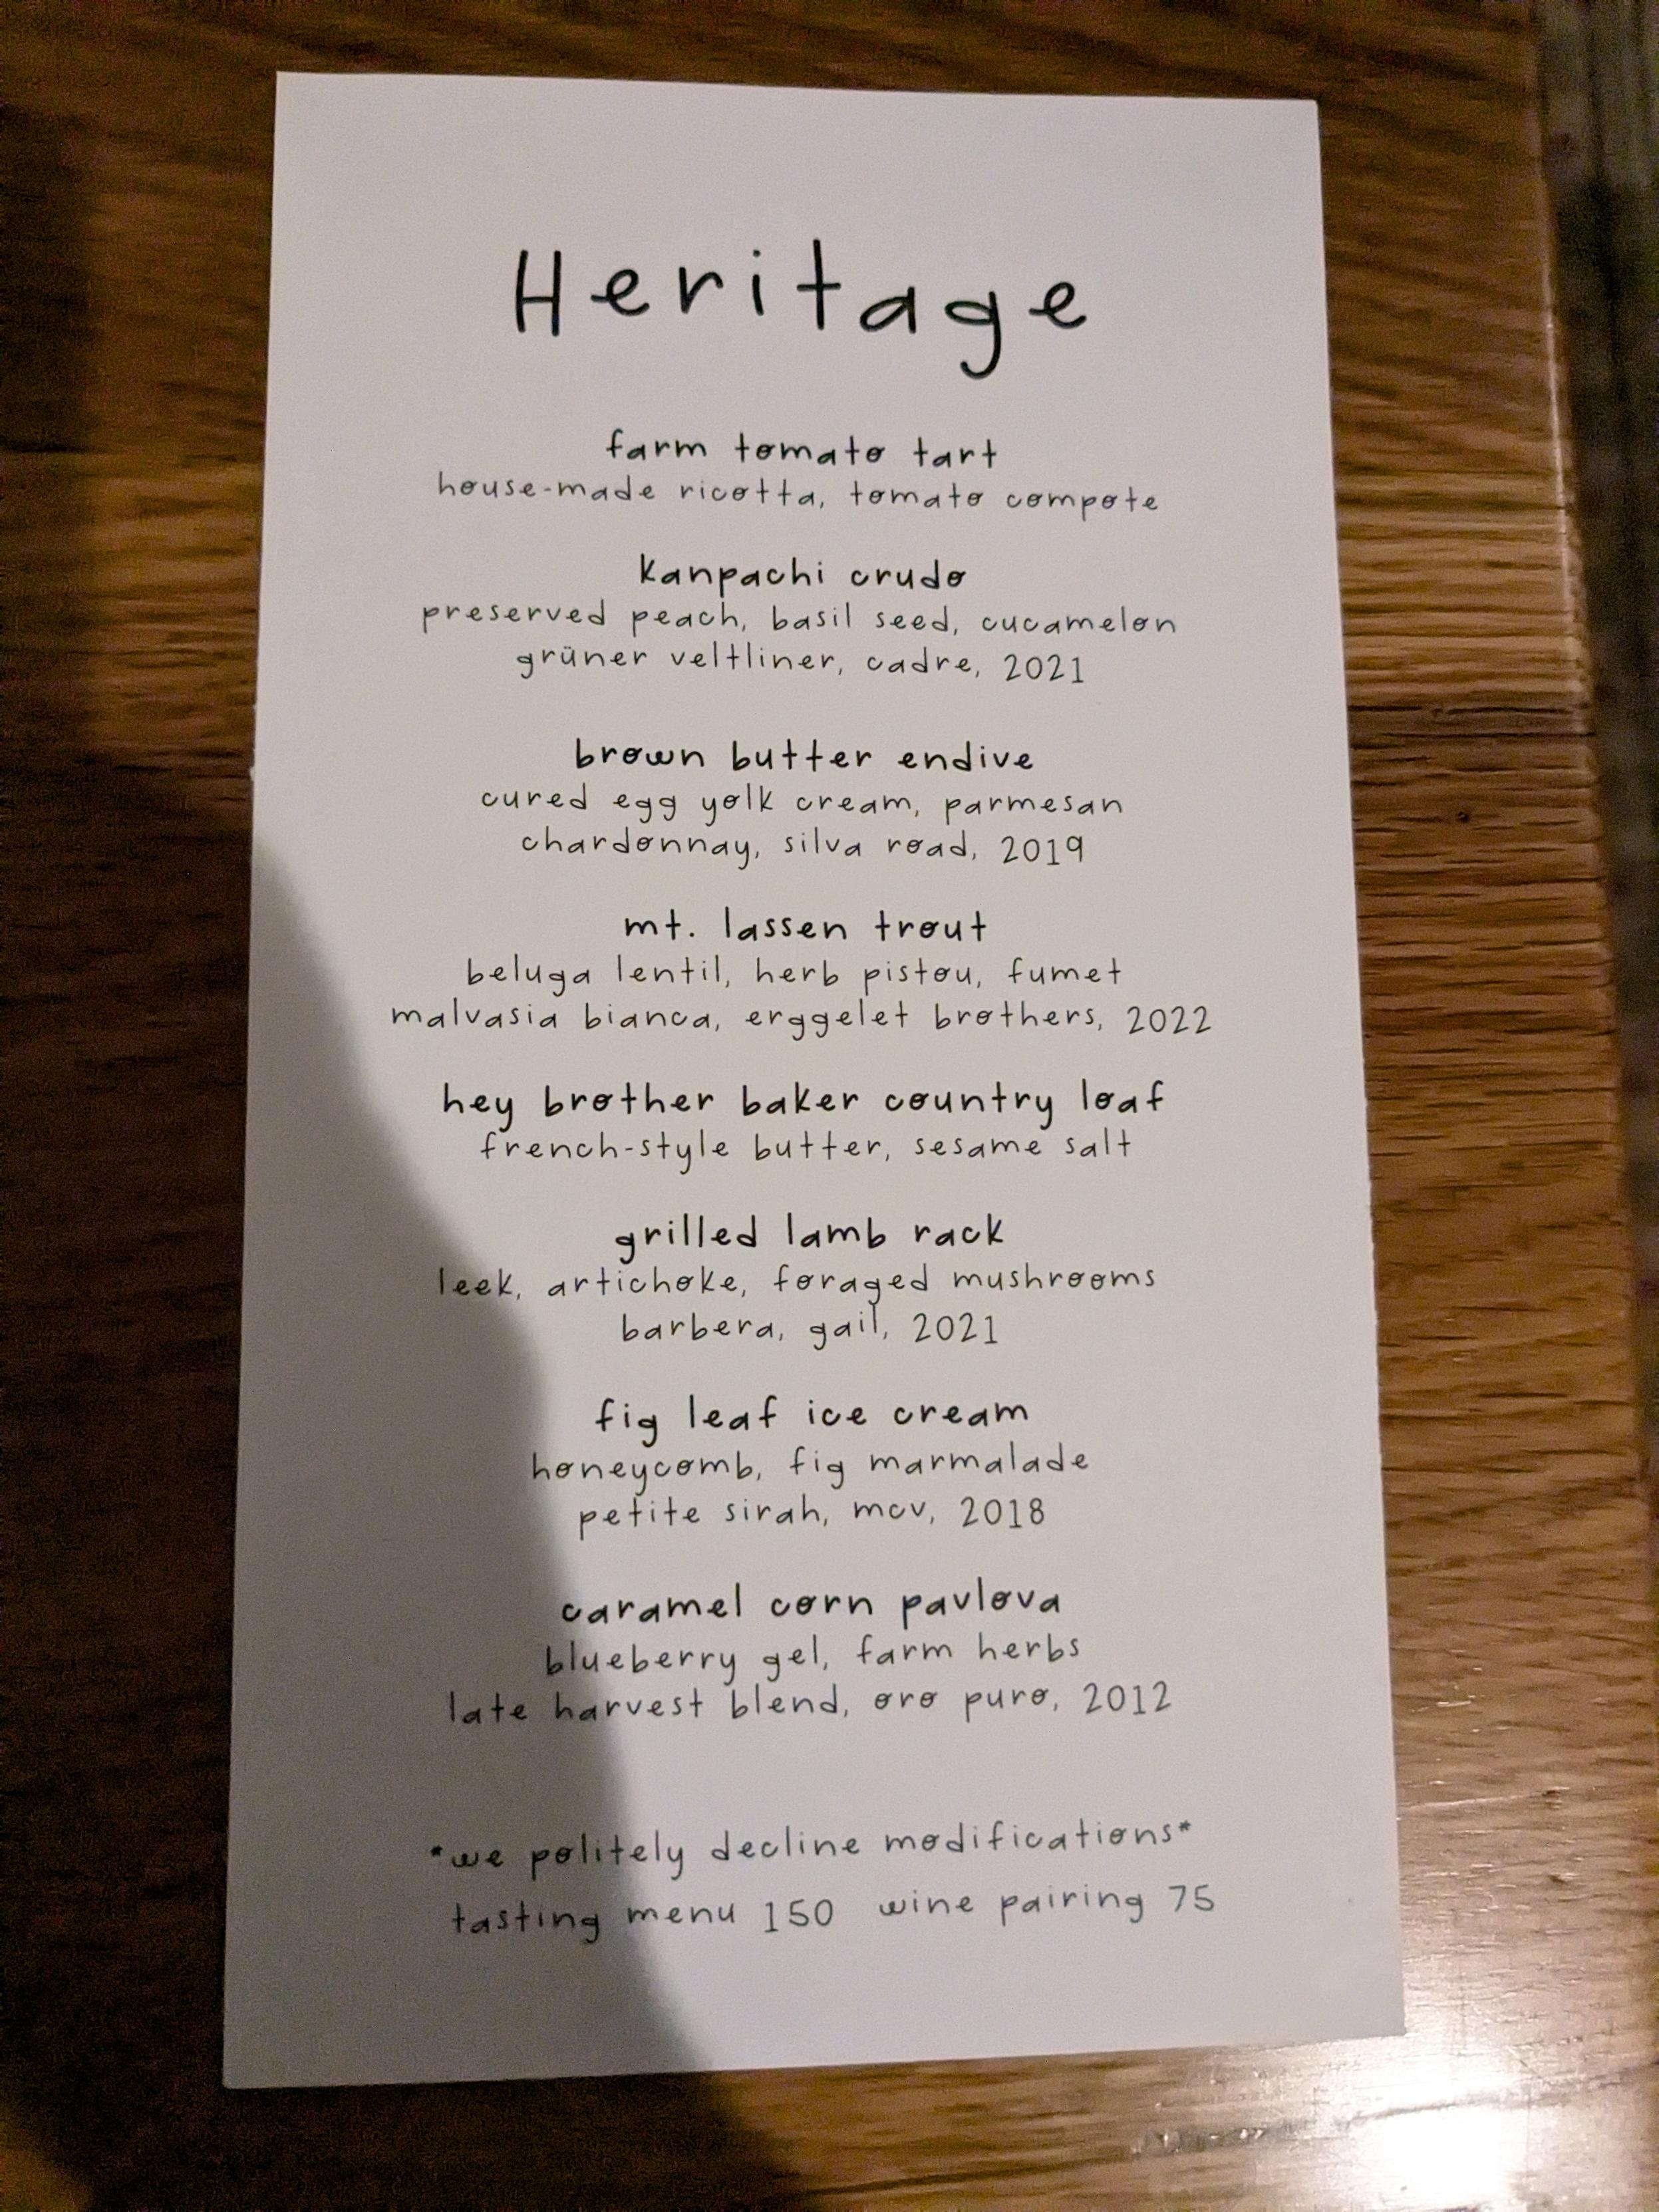 Heritage
farm tomato tart
house-made ricotta, tomato compote
kanpachi crudo
preserved peach, basil seed, cucamelon
grüner veltliner, cadre, 2021
brown butter endive
cured egg yolk cream, parmesan
chardonnay, silva road, 2019
mt. lassen trout
beluga lentil, herb pistou, fumet
malvasia bianca, erggelet brothers, 2022
hey brother baker country loaf
french-style butter, sesame salt
grilled lamb rack
leek, artichoke, foraged mushrooms
barbera, gail, 2021
fig leaf ice cream
honeycomb, fig marmalade
petite sirah, mcv, 2018
caramel corn pavlova
blueberry gel, farm herbs
late harvest blend, oro puro, 2012
*we politely decline modifications*
tasting menu 150 wine pairing 75